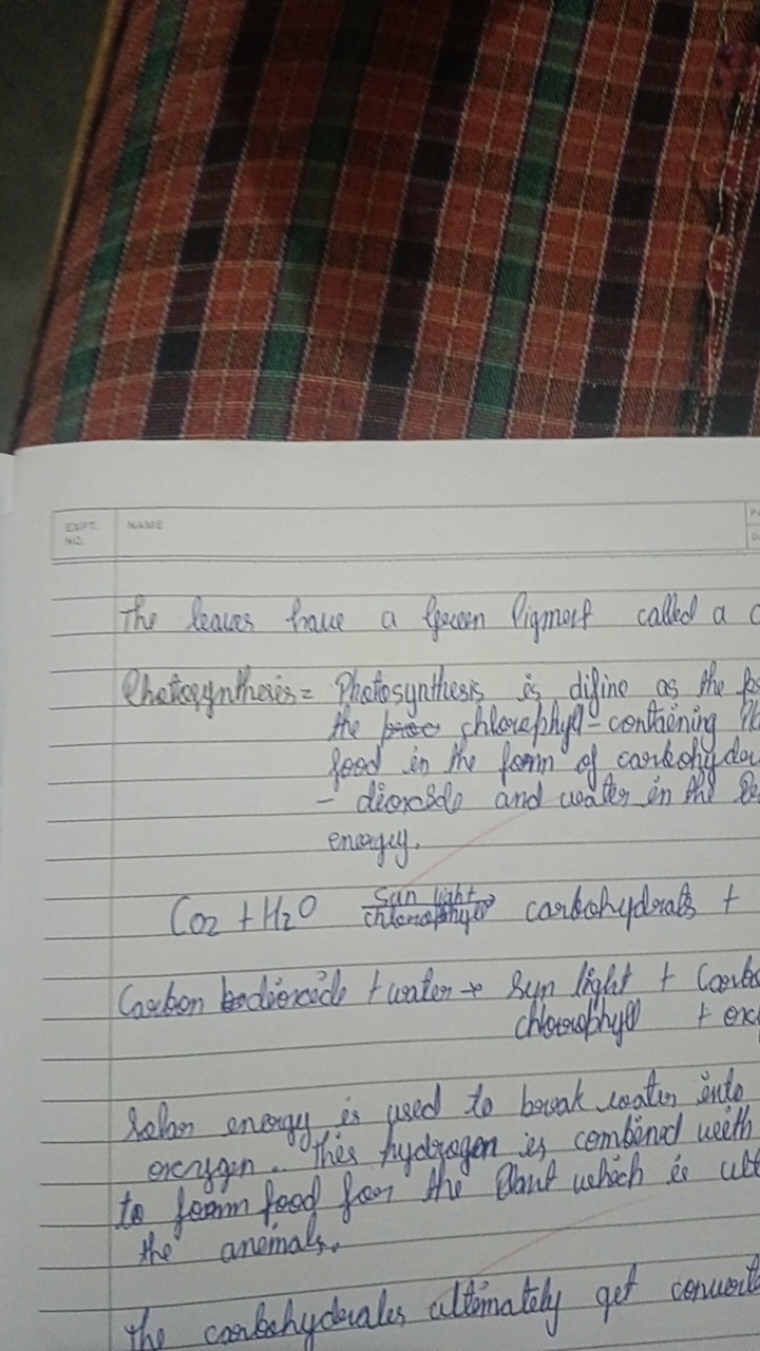 EXPT. NAME
NO.
The leaves have a Green Pigment called a c
Photosynthesis = Photosynthesis is difine as the
the chlorophyll-containing
food in the form of carbohyd
- dioxide and water in the
energy.
Co2 + H2O Sun light carbohydrats +
chlorophyll
Carbon dioxide + water → Syn light + Carb
chlorophyll + ox
Solar energy is used to break water into
oxygen.. This hydrogen is combined with
to form food for the Plant which is ult
the animals.
The carbohydrales ultimately get convert